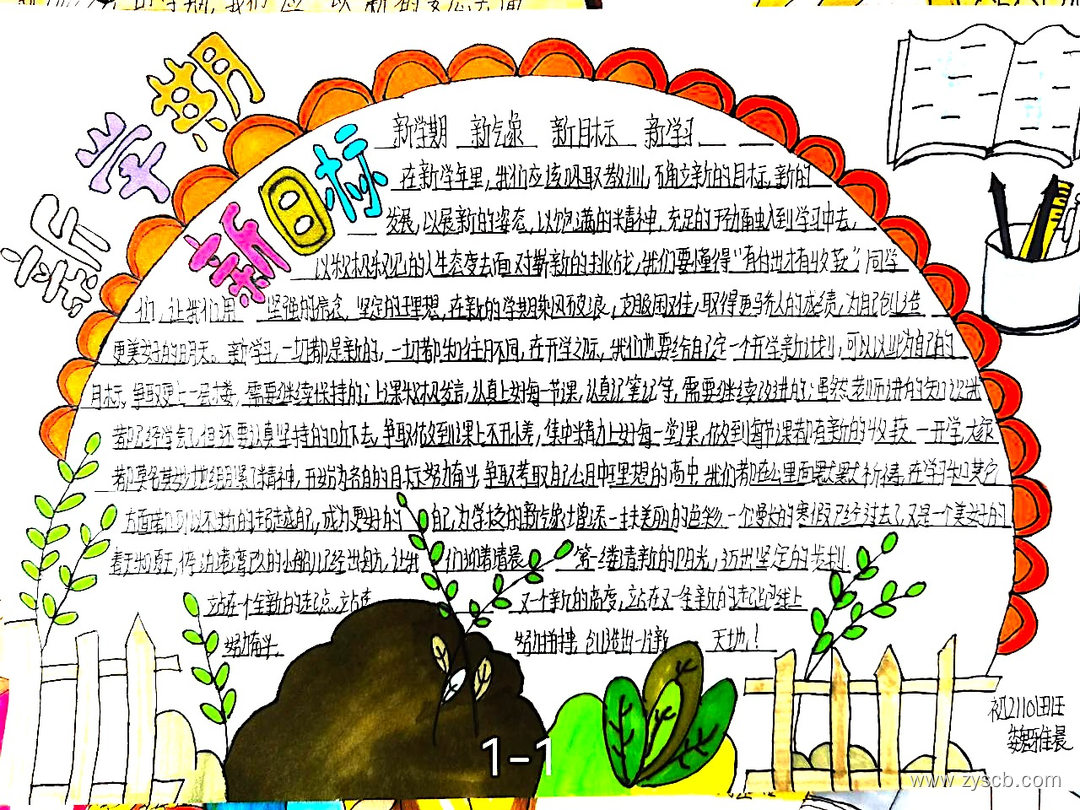 新学期
新目标
新学期 新气象 新目标 新学习
在新学年里,我们应该吸取教训,而确立新的目标,新的
发展,以展新的姿态,以饱满的精神,充足的干劲融入到学习中去,
以积极乐观的人生态度去面对崭新的挑战,我们要懂得"有付出才有收获"同学
们,让我们用 坚强的信念 坚定的理想,在新的学期乘风破浪,克服困难,取得更骄人的成绩,为自己创造
更美好的明天。新学习,一切都是新的,一切都和往日不同,在开学之际,我们也要给自己定一个开学新计划,可以以此为自己的
目标,争取更上一层楼,需要继续保持的:上课积极发言,认真上好每一节课,认真记笔记等,需要继续改进的:虽然老师讲的知识
都已经学会了但还要认真坚持的听下去,争取做到课上不开小差,集中精力上好每一堂课,做到每节课都有新的收获 一开学,大家
都要
为各自的目标努力奋斗 争取考取自己心目中理想的高中,我们都在心里面默默祈祷,在学习和其它
方面都可以不断的超越自己,成为更好的 自己,为学校的新气象增添一抹美丽的色彩 一个漫长的寒假已经过去了又是一个美好的
春
们迎着清晨 第一缕清新的阳光,迈出坚定的步伐
站在一个全新的起点,站在 又一个新的高度,站在又一条新的起跑线上
努力奋斗 努力拼搏 创造出一片新 天地!
初2110
1-1
www.zyscb.com